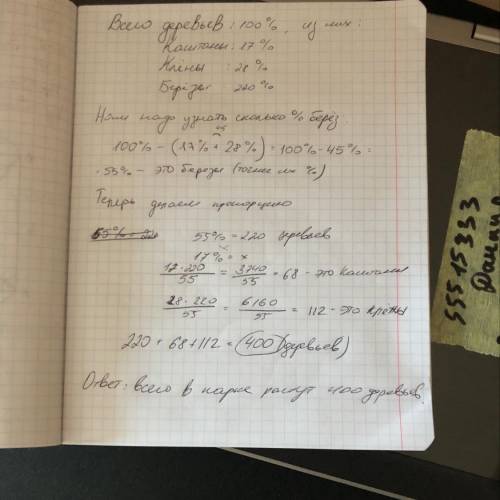 Всего деревьев: 100%, из них:
Каштаны: 17%
Клёны: 28%
Берёзы 220%
Нам надо узнать сколько % берёз.
45
100% - (17% + 28%) = 100% - 45% =
= 55% - это березы (точнее их %)
Теперь делаем пропорцию
55% = 220 деревьев
17% = x
17·220/55 = 3740/55 = 68 - это каштаны
28·220/55 = 6160/55 = 112 - это клёны
220 + 68 + 112 = 400 (деревьев)
Ответ: всего в парке растут 400 деревьев.
55515333